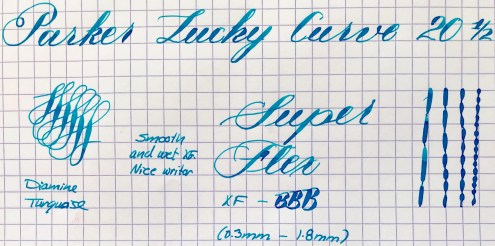 Parker Lucky Curve 20 1/2
Super
Flex
XF - BBB
(0.3mm - 1.8mm)
Smooth
and wet XF.
Nice writer
Diamine
Turquoise